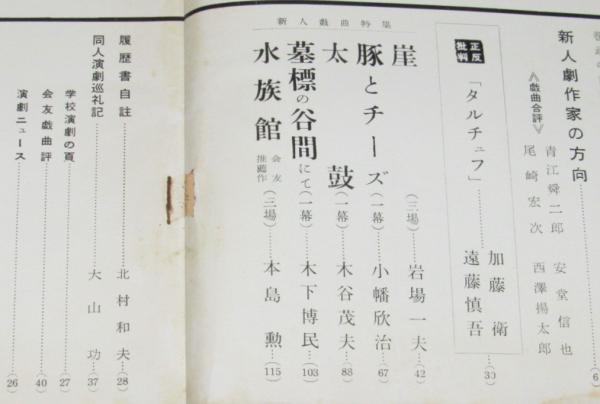 新人劇作家の方向
≪戯曲合評≫
青江舜二郎 安堂信也
尾崎宏次 西澤揚太郎
(6
正反批判 「タルチュフ」 加藤衛
遠藤慎吾 (30)
新人戯曲特集
崖 (三場) 岩場一夫 (42)
豚とチーズ (一幕) 小幡欣治 (67)
太鼓 (一幕) 木谷茂夫 (88)
墓標の谷間にて (一幕) 木下博民 (103)
水族館 会友推薦作 (三場) 本島勲 (115)
履歴書自註 北村和夫 (28)
同人演劇巡礼記 大山功 (37)
学校演劇の頁 (27)
会友戯曲評 (40)
演劇ニュース (26)